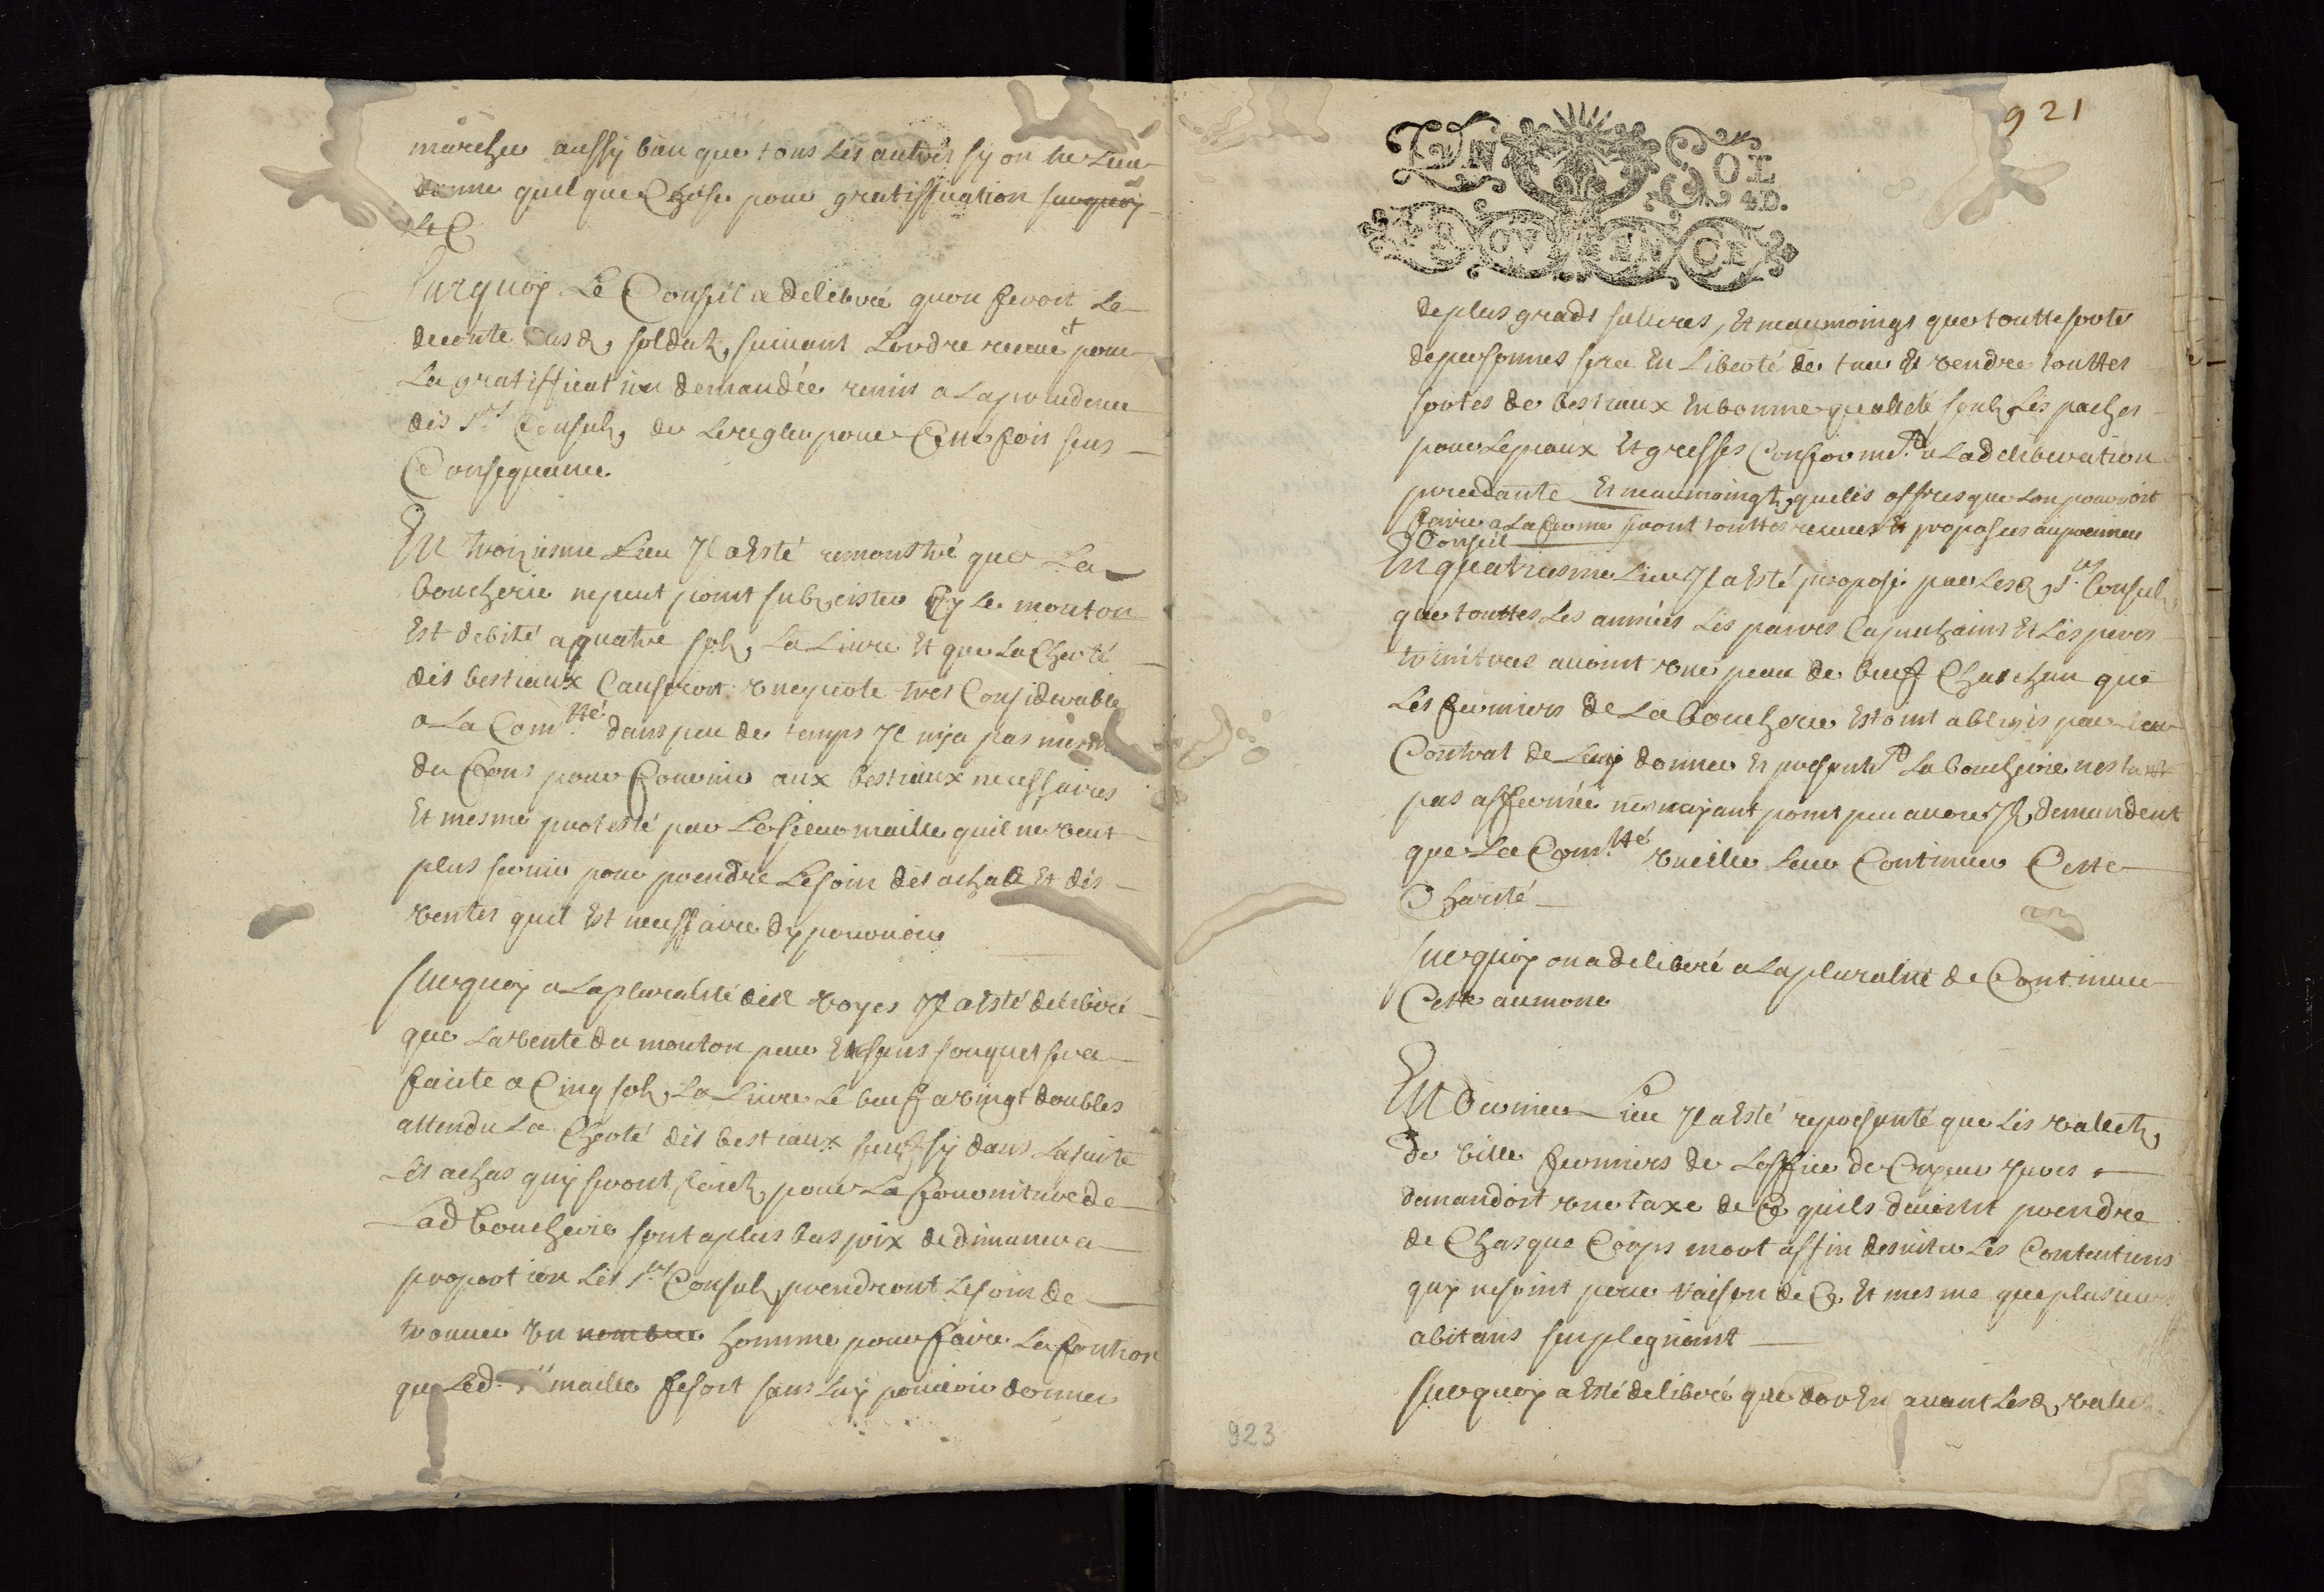 marcher aussy bien que tous les autres sy on ne leur
donne quelque chose pour gratiffication surquoy
le C
Surquoy Le Conseil a deliberé quon feroit le
deconte ausd. soldatz suivant Lordre receue et pour
La gratiffication demandée remis a la prudence
des Srs Consulz de le regler pour Cette fois sans
Consequance
En troiziesme Lieu Il a Esté remonstré que La
boucherie ne peut point subcister sy le mouton
Est debité a quatre solz La Livre Et que la Cherté
des bestiaux Causeroit une perte tres Considerable
a La Com.tté dans peu de temps Il ny a pas mesme
de fons pour fournir aux bestiaux necessaires
Et mesme protesté par Le sieur maille quil ne veut
plus servir pour prendre Le soin des achatz Et des
ventes quil Est necessaire dy pourvoir
Surquoy a La pluralité des voyes Il a Esté deliberé
que La vente du mouton pur Et sans souquet sera
faicte a Cinq solz La Livre Le beuf a vingt doubles
attendu La Cherté des bestiaux sauf sy dans La suite
Les achas quy seront faictz pour La fourniture de
Lad boucherie sont a plus bas prix de diminuer a
proportion Les Srs Consulz prendront Le soin de
trouver un nombre homme pour faire La fontion
que Led. Sr maille fesoit sans Luy pouvoir donner
921
UN SOL
4 D.
PROVENCE
de plus grads salleres, Et neaumoings que toutte sorte
de personnes sera En Liberté de tuer et vendre touttes
sortes de bestiaux En bonne qualité sauf Les paches
pour Les peaux Et gresses Conformt. a Lad deliberation
precedante Et neaumoingtz que les offres que Lon pourroit
faire a La ferme seront touttes receues Et proposees au premier
Conseil
En quatriesme Lieu Il a Esté proposé par Lesd. Srs Consulz
que touttes Les années Les pauvres Capuchains Et Les peres
trinitres avoint une peau de beuf Chascun que
Les fermiers de La boucherie Estoint abligés par Leur
Contrat de Leur donner Et presentt La boucherie nestant
pas affermée nen nayant point peu avoir Ilz demandent
que La Com.tté veuille Leur Continuer Cette
Charité
Surquoy on a deliberé a La pluralité de Continuer
Cette aumone
En dernier Lieu Il a Esté representé que Les valletz
de ville fermiers de Loffice de Crieur jures
demandoit une taxe de Ce quils devoint prendre
de Chasque Corps mort affin desviter Les Contentions
quy nesoint pour raison de Ce Et mesme que plusieurs
abitans sen plegnoint
Surquoy a Esté deliberé que dor En avant Lesd. valletz
923